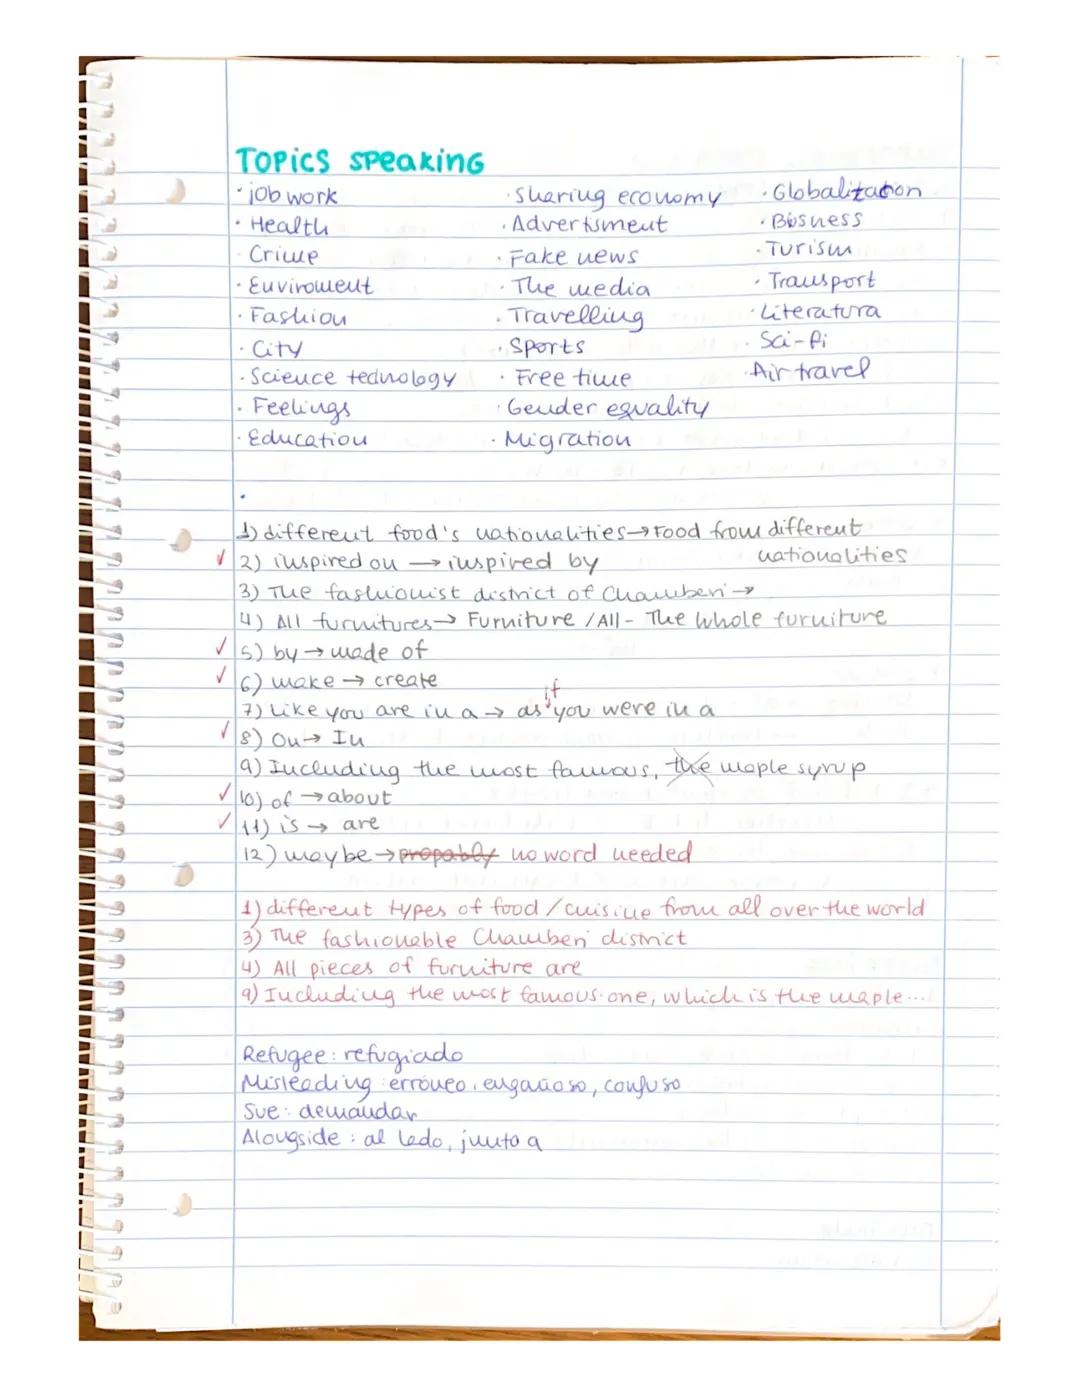 TOPICS SPEAKING
· job work
· Health
· Crime
· Enviroment
· Fashion
· City
· Science technology
· Feelings
· Education
· Sharing economy
· Advertisment
· Fake news
· The media
· Travelling
· Sports
· Free time
· Gender equality
· Migration
· Globalization
· Busness
· Turism
· Transport
· Literatura
· Sci-fi
· Air travel
1) different food's nationalities → Food from different
nationalities
✓ 2) inspired on → inspired by
3) The fashionist district of Chamberi →
4) All furnitures → Furniture / All - The whole furniture
✓ 5) by → made of
✓ 6) make → create
7) Like you are in a → as if you were in a
✓ 8) On → In
9) Including the most famous, the maple syrup
✓ 10) of → about
✓ 11) is → are
12) maybe → propably no word needed
1) different types of food / cuisine from all over the world
3) The fashionable Chamberi district
4) All pieces of furniture are
9) Including the most famous one, which is the maple...
Refugee: refugiado
Misleading: erróneo, engañoso, confuso
Sue: demandar
Alongside: al lado, junto a